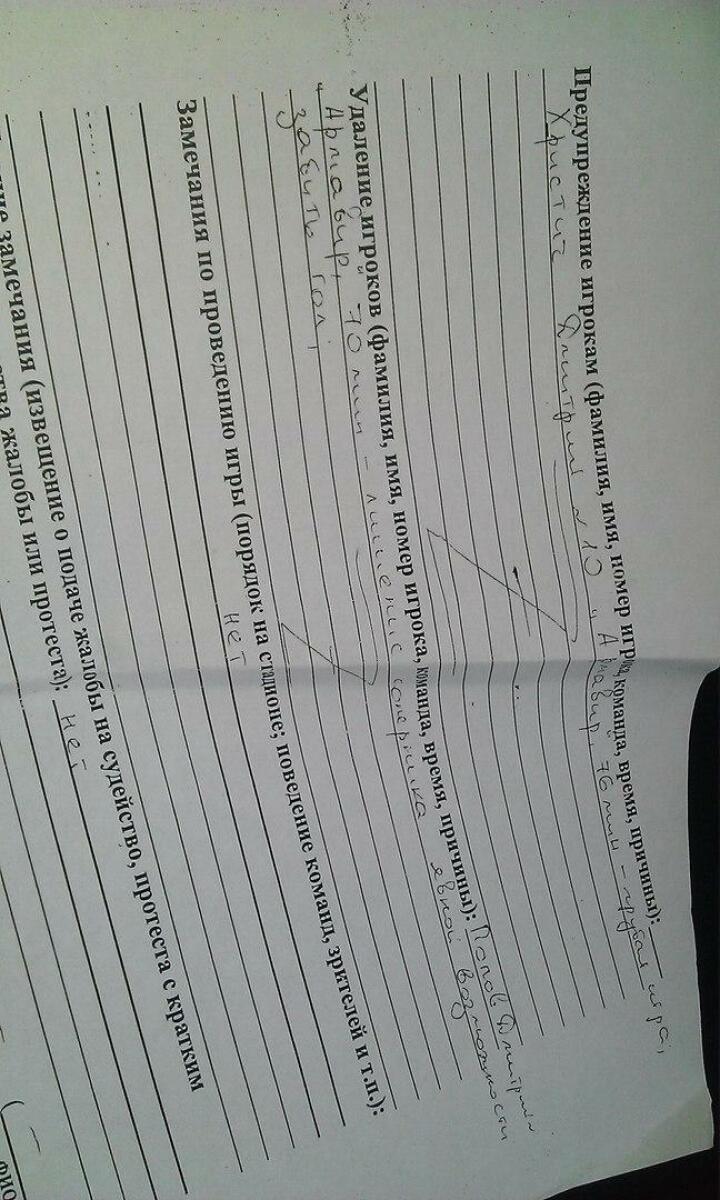 Предупреждение игрокам (фамилия, имя, номер игрока, команда, время, причины):
Христич Дмитрий №10 "Армавир", 76 мин – грубая игра;
Удаление игроков (фамилия, имя, номер игрока, команда, время, причины): Попов Дмитрий
"Армавир", 70 мин – лишение соперника явной возможности
забить гол;
Замечания по проведению игры (порядок на стадионе; поведение команд, зрителей и т.п.):
нет
замечания (извещение о подаче жалобы на судейство, протеста с кратким
жалобы или протеста): нет